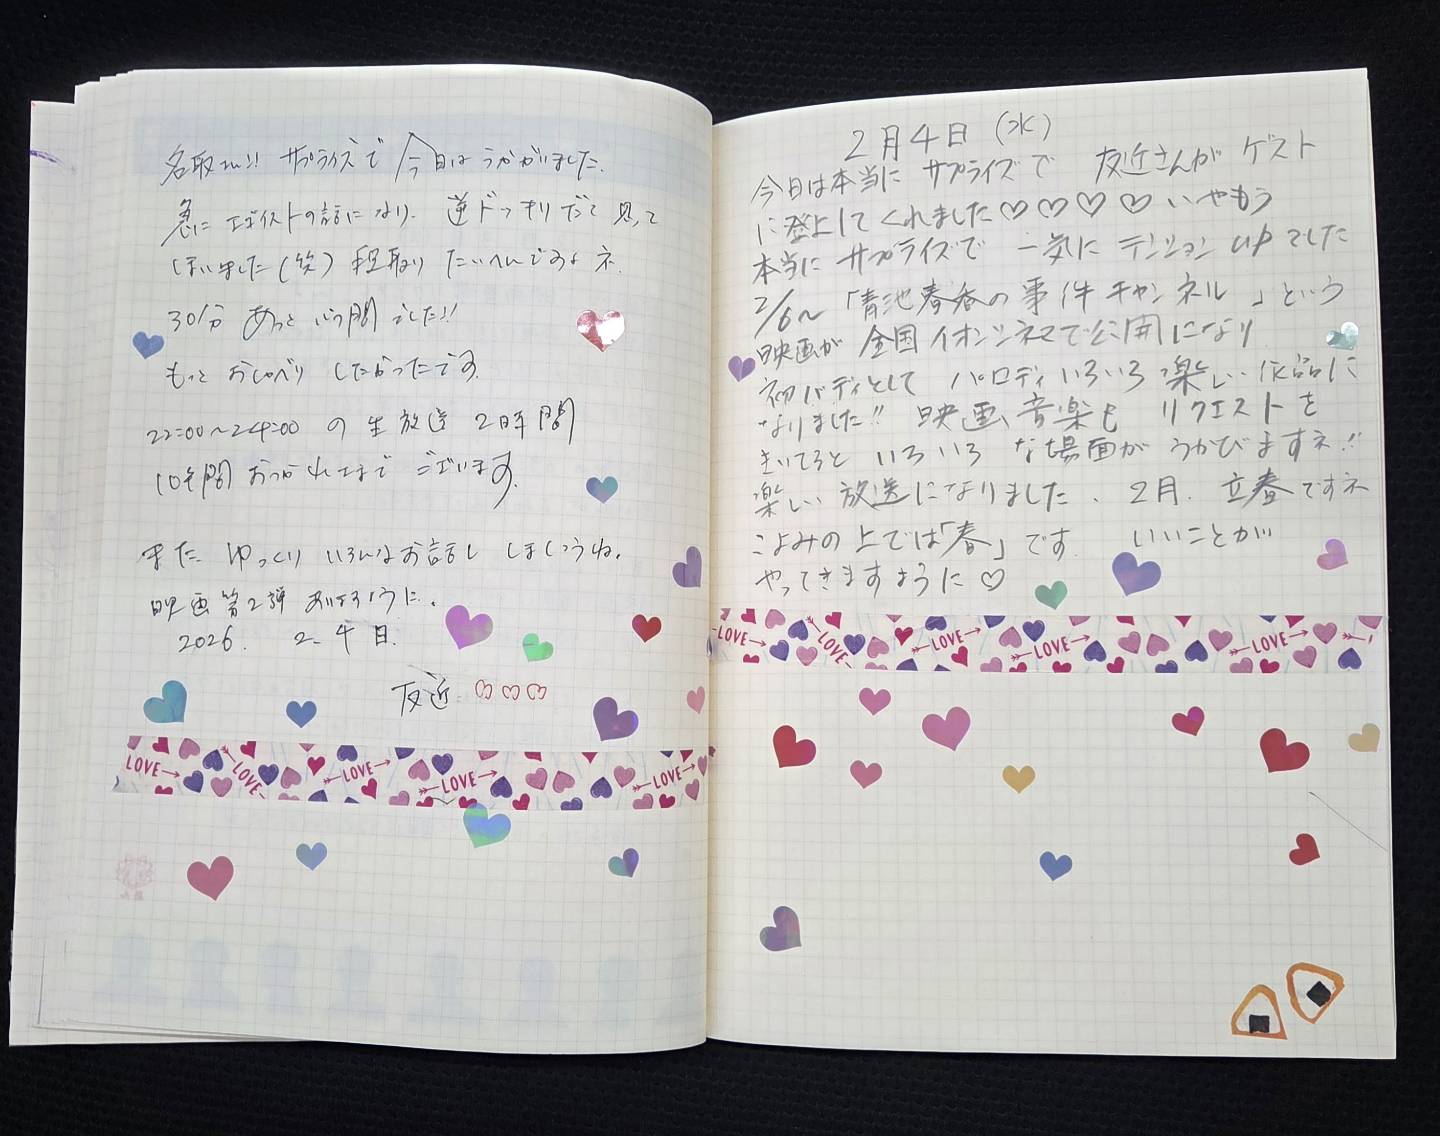 名取さん!! サプライズで 今日は うかがいました.
急に エゴイストの話になり. 逆ドッキリだて 思って
しまいました(笑) 段取り たいへんですよネ.
30分 あっと いう間 でした!!
もっと おしゃべり したかったです.
22:00〜24:00 の 生放送 2時間
10年間 おつかれさまで ございます.
また ゆっくり いろんなお話し しましょうね.
映画 第2弾 ありますように.
2026. 2. 4日.
友近 ♡♡♡
LOVE LOVE LOVE LOVE LOVE
2月4日 (水)
今日は本当に サプライズで 友近さんが ゲスト
に登上してくれました♡♡♡♡ いやもう
本当に サプライズで 一気に テンション upでした
2/6〜 「青池春香の事件チャンネル」という
映画が 全国イオンシネマで公開になり
初バディとして パロディいろいろ 楽しい作品に
なりました!! 映画音楽も リクエストを
きいてると いろいろ な場面が うかびますネ!!
楽しい 放送になりました. 2月. 立春ですネ
こよみの上では「春」です. いいことが
やってきますように♡
LOVE LOVE LOVE LOVE LOVE